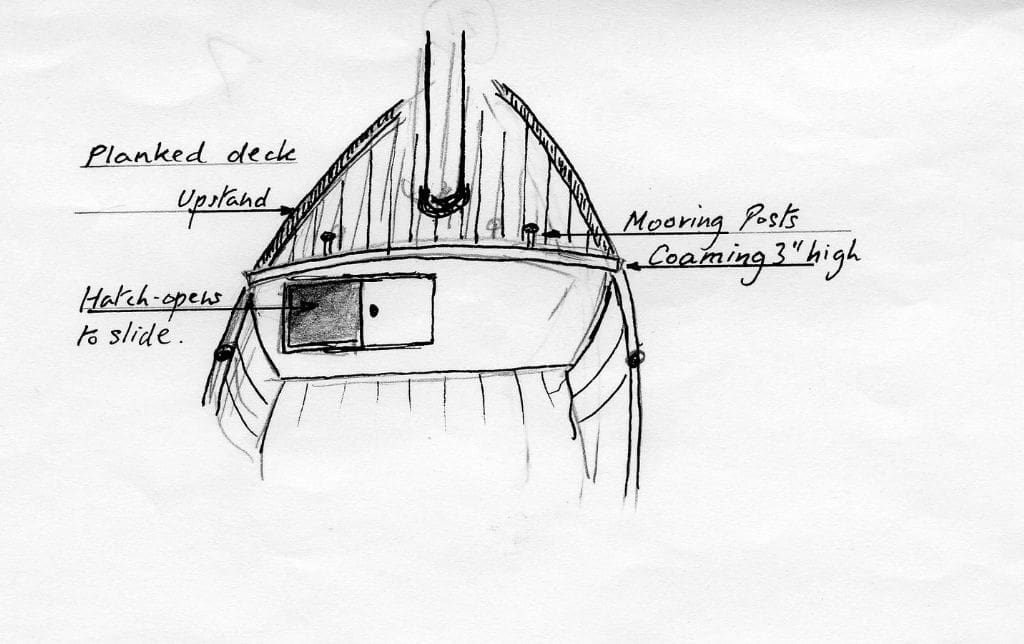 Planked deck
Upstand
Mooring Posts
Coaming 3" high
Hatch-opens
to slide.